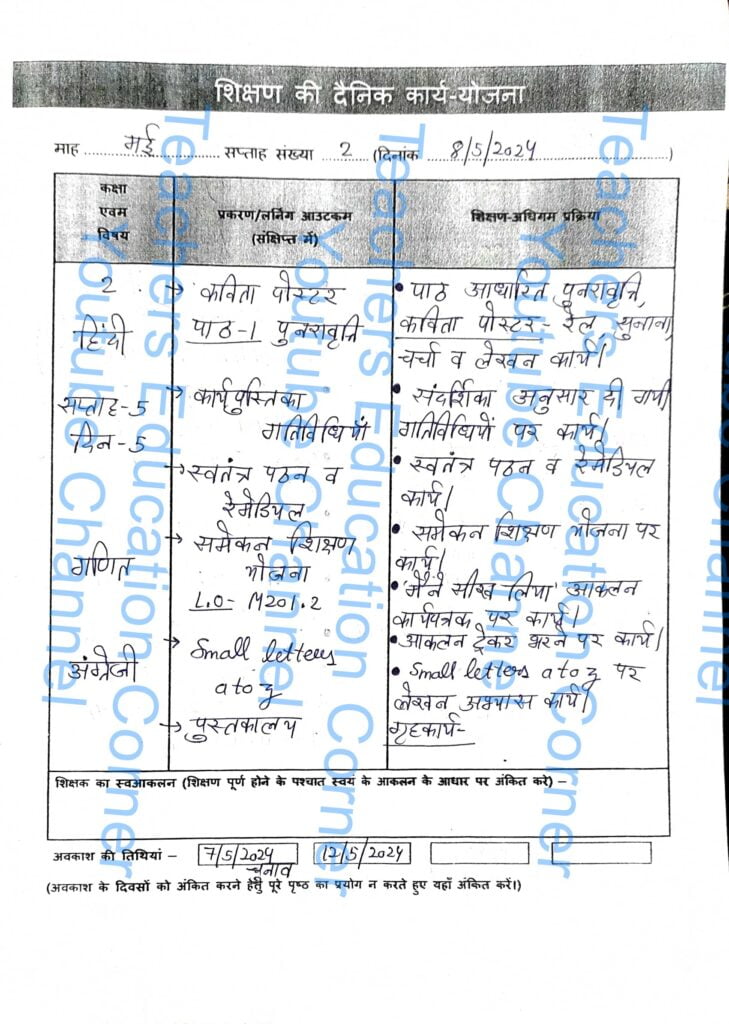 शिक्षण की दैनिक कार्य-योजना
माह मई सप्ताह संख्या 2 (दिनांक 8/5/2024)
कक्षा
एवम
विषय
प्रकरण/लर्निंग आउटकम
(संक्षिप्त में)
शिक्षण-अधिगम प्रक्रिया
2
हिंदी
सप्ताह-5
दिन-5
→ कविता पोस्टर
पाठ-1 पुनरावृत्ति
→ कार्यपुस्तिका
गतिविधियाँ
→ स्वतंत्र पठन व
रेमेडियल
• पाठ आधारित पुनरावृत्ति,
कविता पोस्टर - रेल, सुनाना,
चर्चा व लेखन कार्य।
• संदर्शिका अनुसार दी गयी
गतिविधियों पर कार्य।
• स्वतंत्र पठन व रेमेडियल
कार्य।
गणित
→ समेकन शिक्षण
योजना
L.O- M201.2
• समेकन शिक्षण योजना पर
कार्य।
• 'मैंने सीख लिया' आकलन
कार्यपत्रक पर कार्य।
• आकलन ट्रेकर भरने पर कार्य।
अंग्रेजी
→ Small letters
a to z
→ पुस्तकालय
• Small letters a to z पर
लेखन अभ्यास कार्य।
गृहकार्य-
शिक्षक का स्वआकलन (शिक्षण पूर्ण होने के पश्चात स्वयं के आकलन के आधार पर अंकित करे) –
अवकाश की तिथियां – 7/5/2024 12/5/2024
चुनाव
(अवकाश के दिवसों को अंकित करने हेतु पूरे पृष्ठ का प्रयोग न करते हुए यहाँ अंकित करें।)
Teachers Education Corner
Youtube Channel
Teachers Education Corner
Youtube Channel
Teachers Education Corner
Youtube Channel